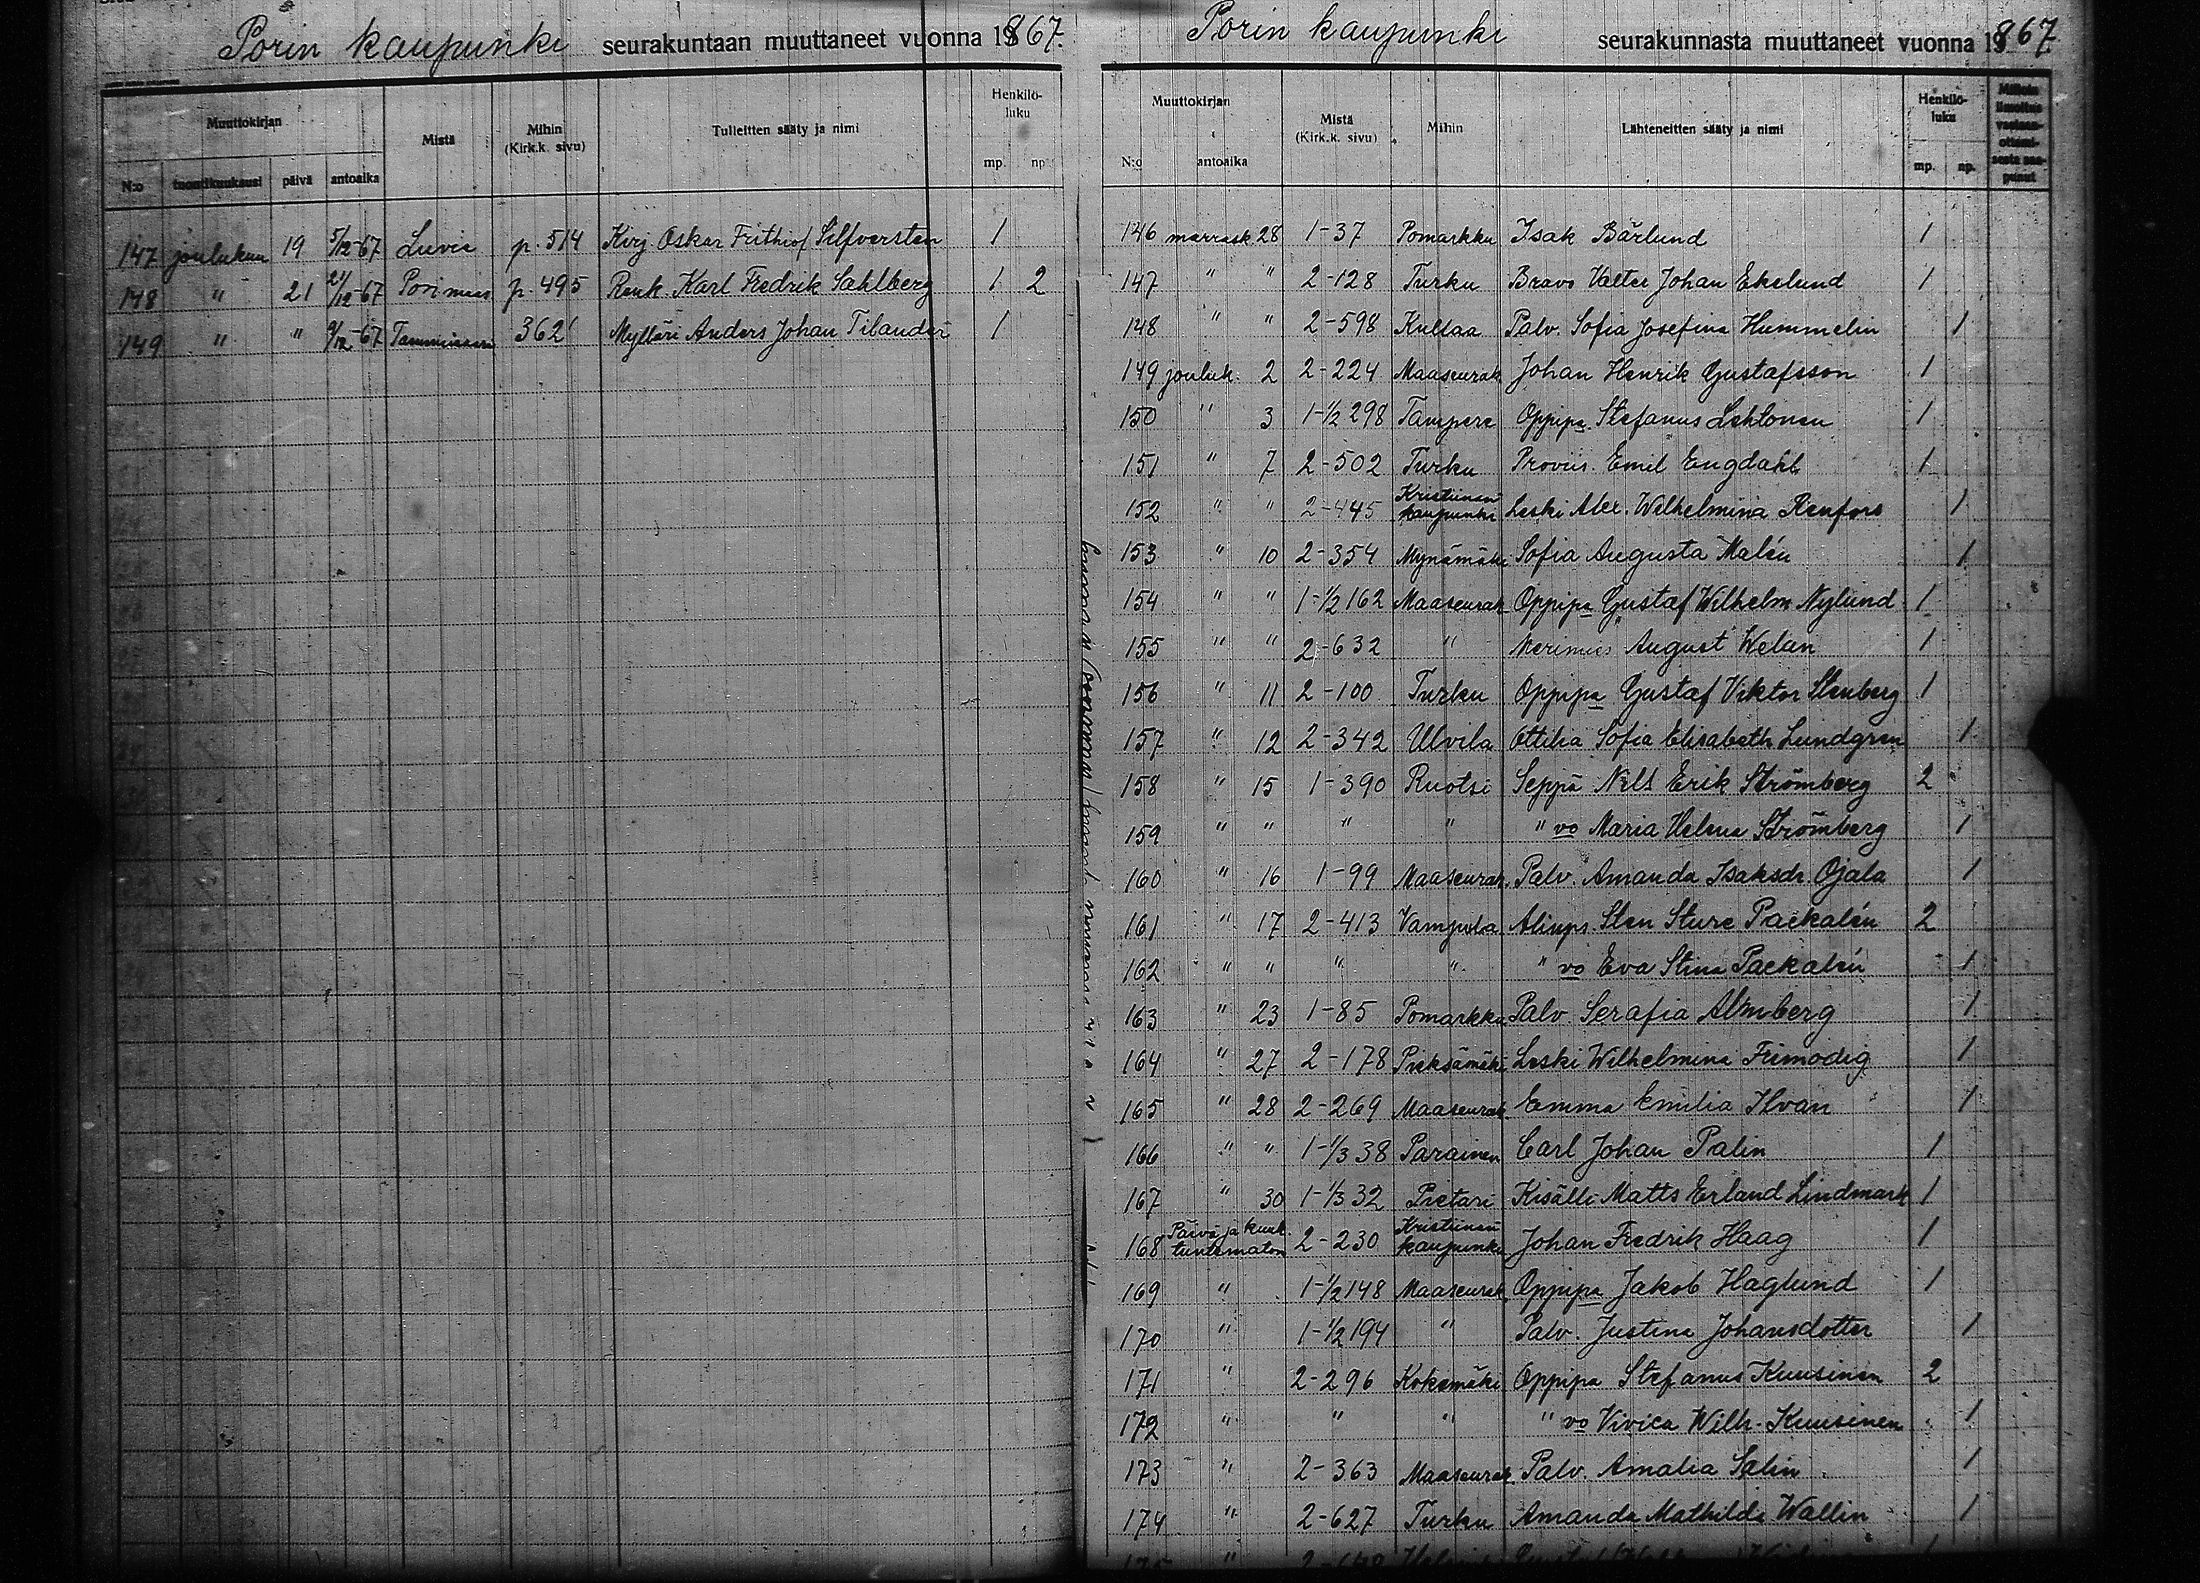 Porin kaupunki seurakuntaan muuttaneet vuonna 1867.
Muuttokirjan
Mistä
Mihin (Kirk.k. sivu)
Tulleitten sääty ja nimi
Henkilö-luku
N:o tuontikuukausi päivä antoaika mp. np.
147 joulukuu 19 5/12-67 Luvia p. 514 Kirj. Oskar Frithiof Silfversten 1
148 " 21 21/12-67 Pori maas p. 495 Renk. Karl Fredrik Sahlberg 1 2
149 " " 9/12-67 Tammisaari 362 Mylläri Anders Johan Tilander 1
Porin kaupunki seurakunnasta muuttaneet vuonna 1867.
Muuttokirjan
Mistä (Kirk.k. sivu)
Mihin
Lähteneitten sääty ja nimi
Henkilö-luku
N:o antoaika mp. np.
146 marrask 28 1-37 Pomarkku Isak Bärlund 1
147 " " 2-128 Turku Bravo Valter Johan Ekelund 1
148 " " 2-598 Kullaa Palv. Sofia Josefina Hummelin 1
149 jouluk. 2 2-224 Maaseurak Johan Henrik Gustafsson 1
150 " 3 1-1/2 298 Tampere Oppipa Stefanus Lehtonen 1
151 " 7 2-502 Turku Proviis. Emil Engdahl 1
152 " " 2-445 Kristiinankaupunki Leski Alex. Wilhelmina Renfors 1
153 " 10 2-354 Mynämäki Sofia Augusta Malén 1
154 " " 1-1/2 162 Maaseurak Oppipa Gustaf Wilhelm Nylund 1
155 " " 2-632 " Merimies August Welan 1
156 " 11 2-100 Turku Oppipa Gustaf Viktor Stenberg 1
157 " 12 2-342 Ulvila Ottilia Sofia Elisabeth Lundgren 1
158 " 15 1-390 Ruotsi Seppä Nils Erik Strömberg 2
159 " " " " " vo Maria Helena Strömberg 1
160 " 16 1-99 Maaseurak. Palv. Amanda Isaksdr. Ojala 1
161 " 17 2-413 Vampula Aliups. Sten Sture Paekalén 2
162 " " " " " vo Eva Stina Paekalén 1
163 " 23 1-85 Pomarkku Palv Serafia Almberg 1
164 " 27 2-178 Pieksämäki Leski Wilhelmina Frimodig 1
165 " 28 2-269 Maaseurak. Emma Emilia Ilvan 1
166 " " 1-1/3 38 Parainen Carl Johan Palin 1
167 " 30 1-1/3 32 Pietari Kisälli Matts Erland Lindmark 1
168 Päivä ja kuuk. tuntematon 2-230 Kristiinankaupunki Johan Fredrik Haag 1
169 " 1-1/2 148 Maaseurak. Oppipa Jakob Haglund 1
170 " 1-1/2 194 " Palv. Justina Johansdotter 1
171 " 2-296 Kokemäki Oppipa Stefanus Kuusinen 2
172 " " " " vo Vivica Wilh. Kuusinen 1
173 " 2-363 Maaseurak. Palv. Amalia Salin 1
174 " 2-627 Turku Amanda Mathilda Wallin 1